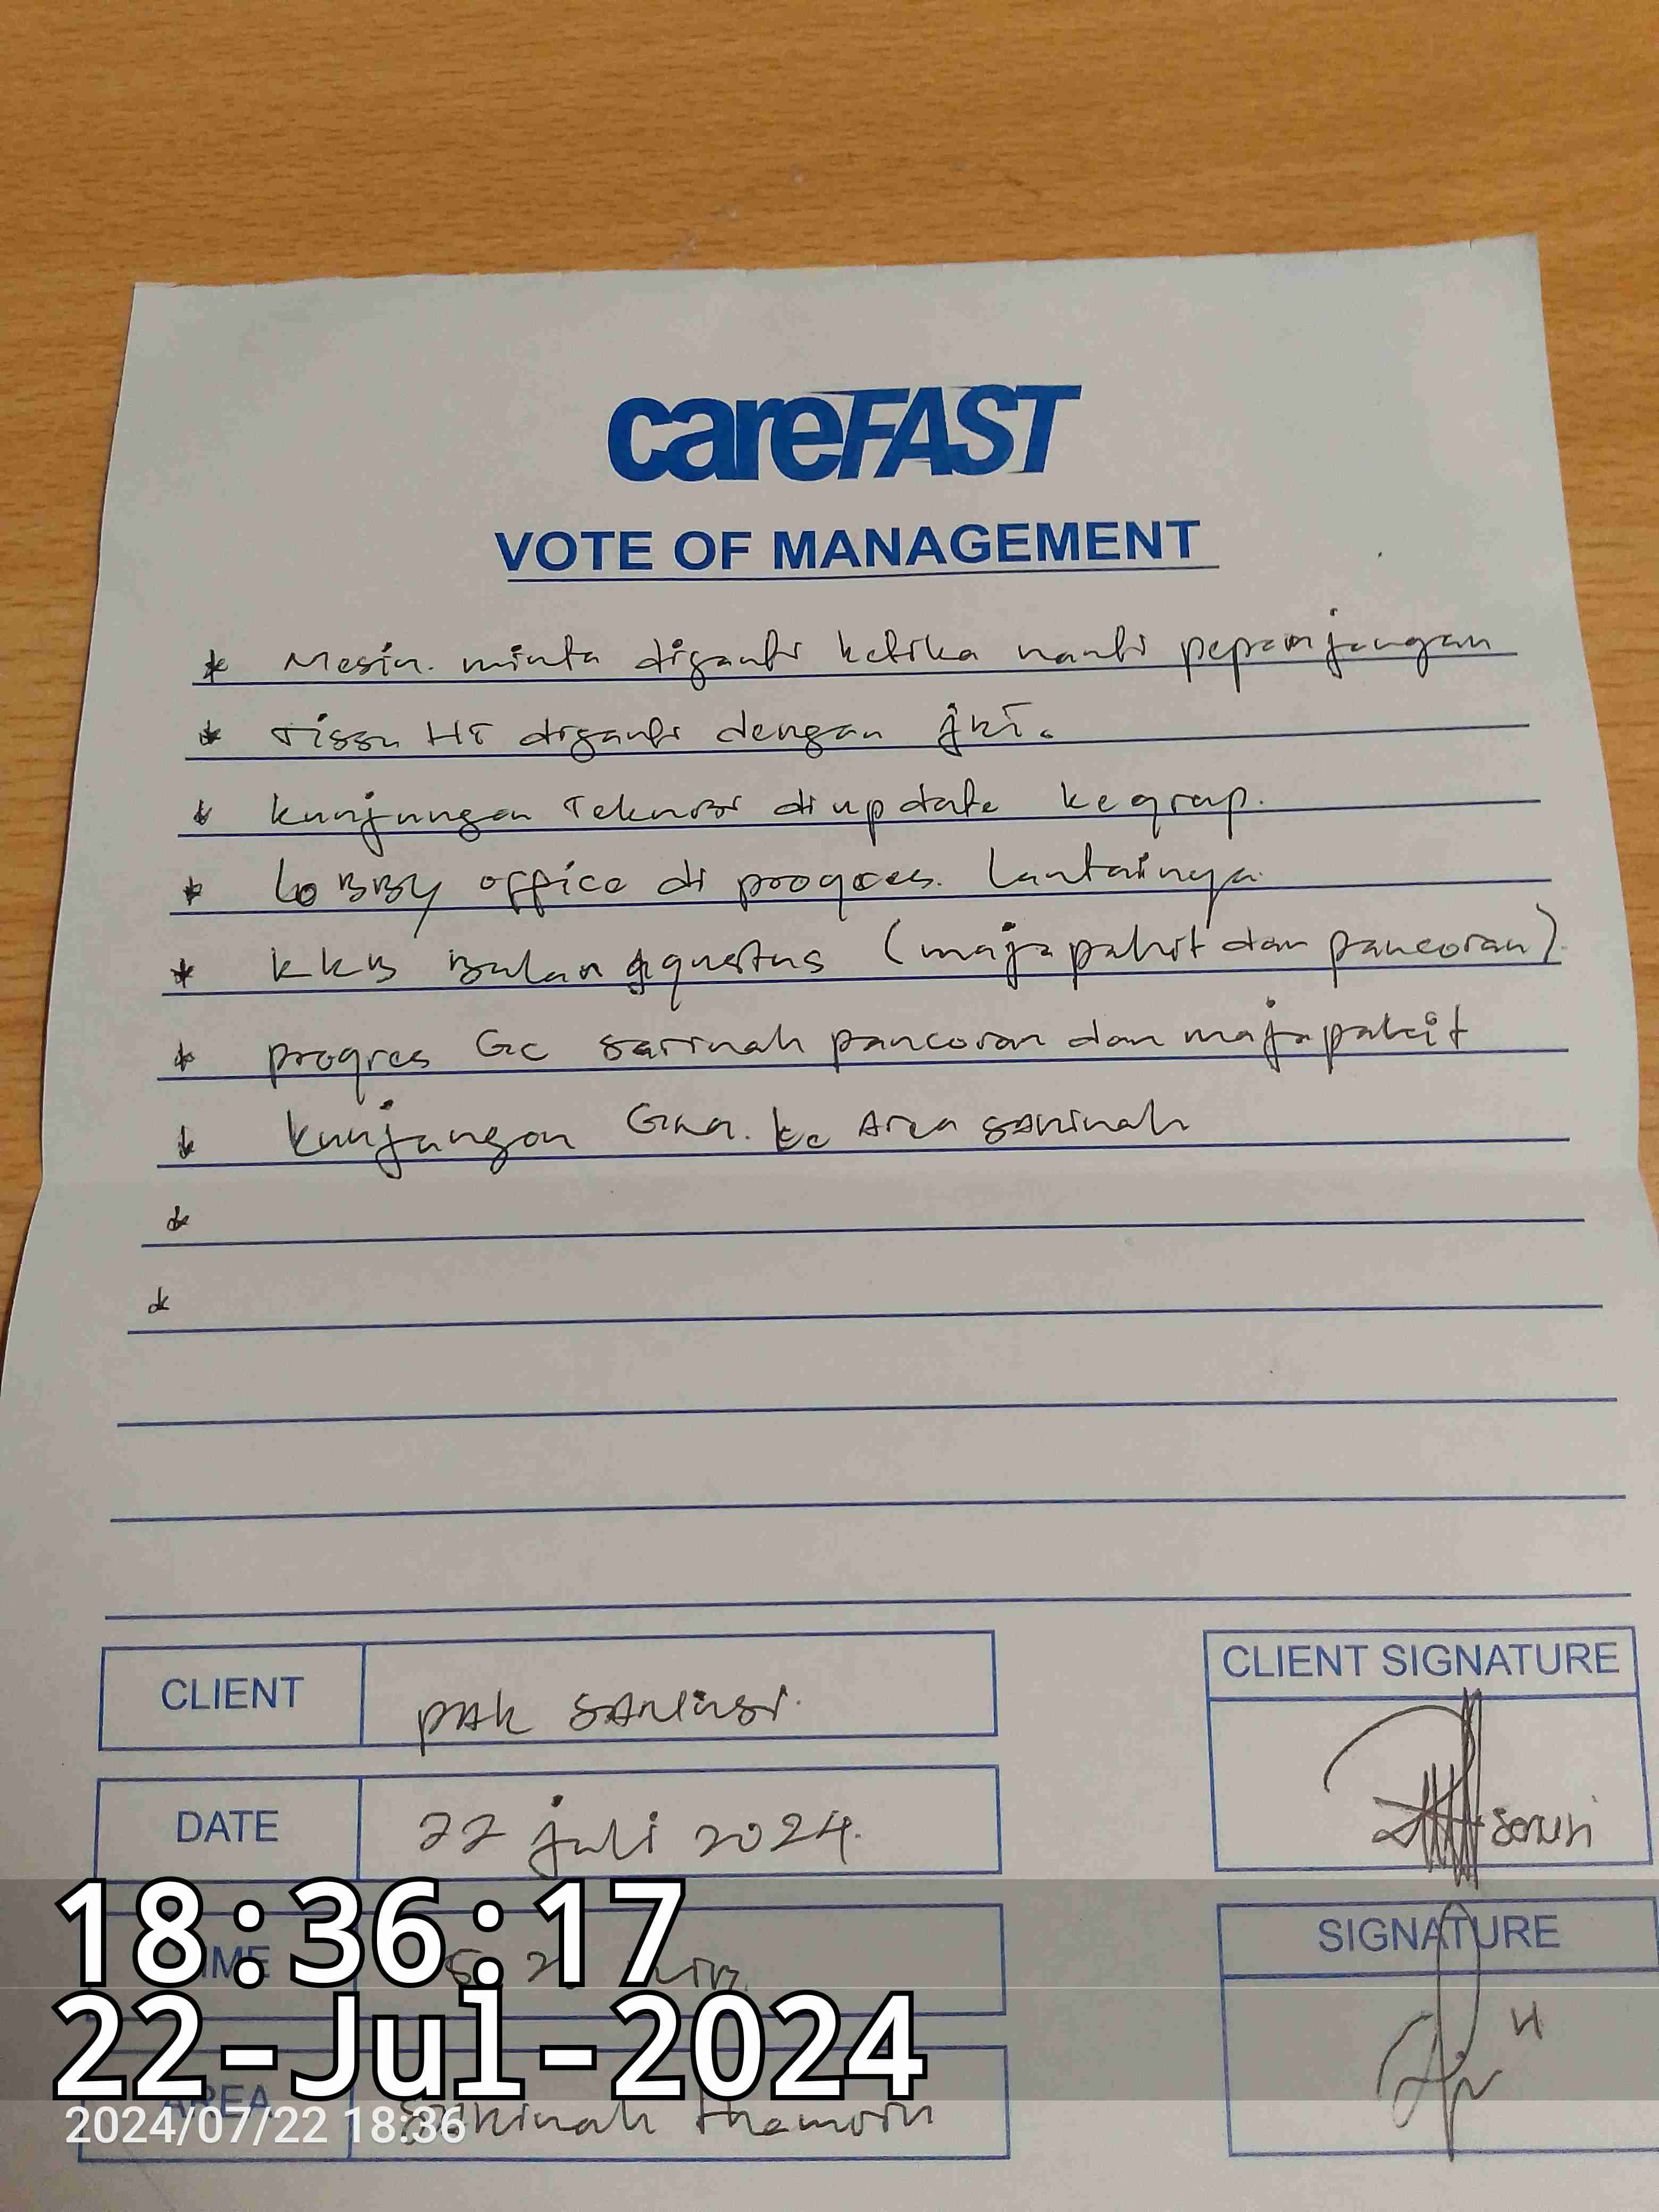 careFAST
VOTE OF MANAGEMENT
* Mesin. minta diganti ketika nanti peparnjangan
* Tissu HT diganti dengan JRT.
* kunjungan Teknisi di update ke grap.
* LoBBY office di progres. Lantainya.
* KKB Bulan Agustus (majapahit dan pancoran).
* progres GC sarinah pancoran dan majapahit
* kunjungan ke Area SARinah
*
*
CLIENT
pAk SARiusi.
CLIENT SIGNATURE
DATE
22 juli 2024.
18:36:17
22-Jul-2024
SIGNATURE
AREA
SARinah thamrin
2024/07/22 18:36